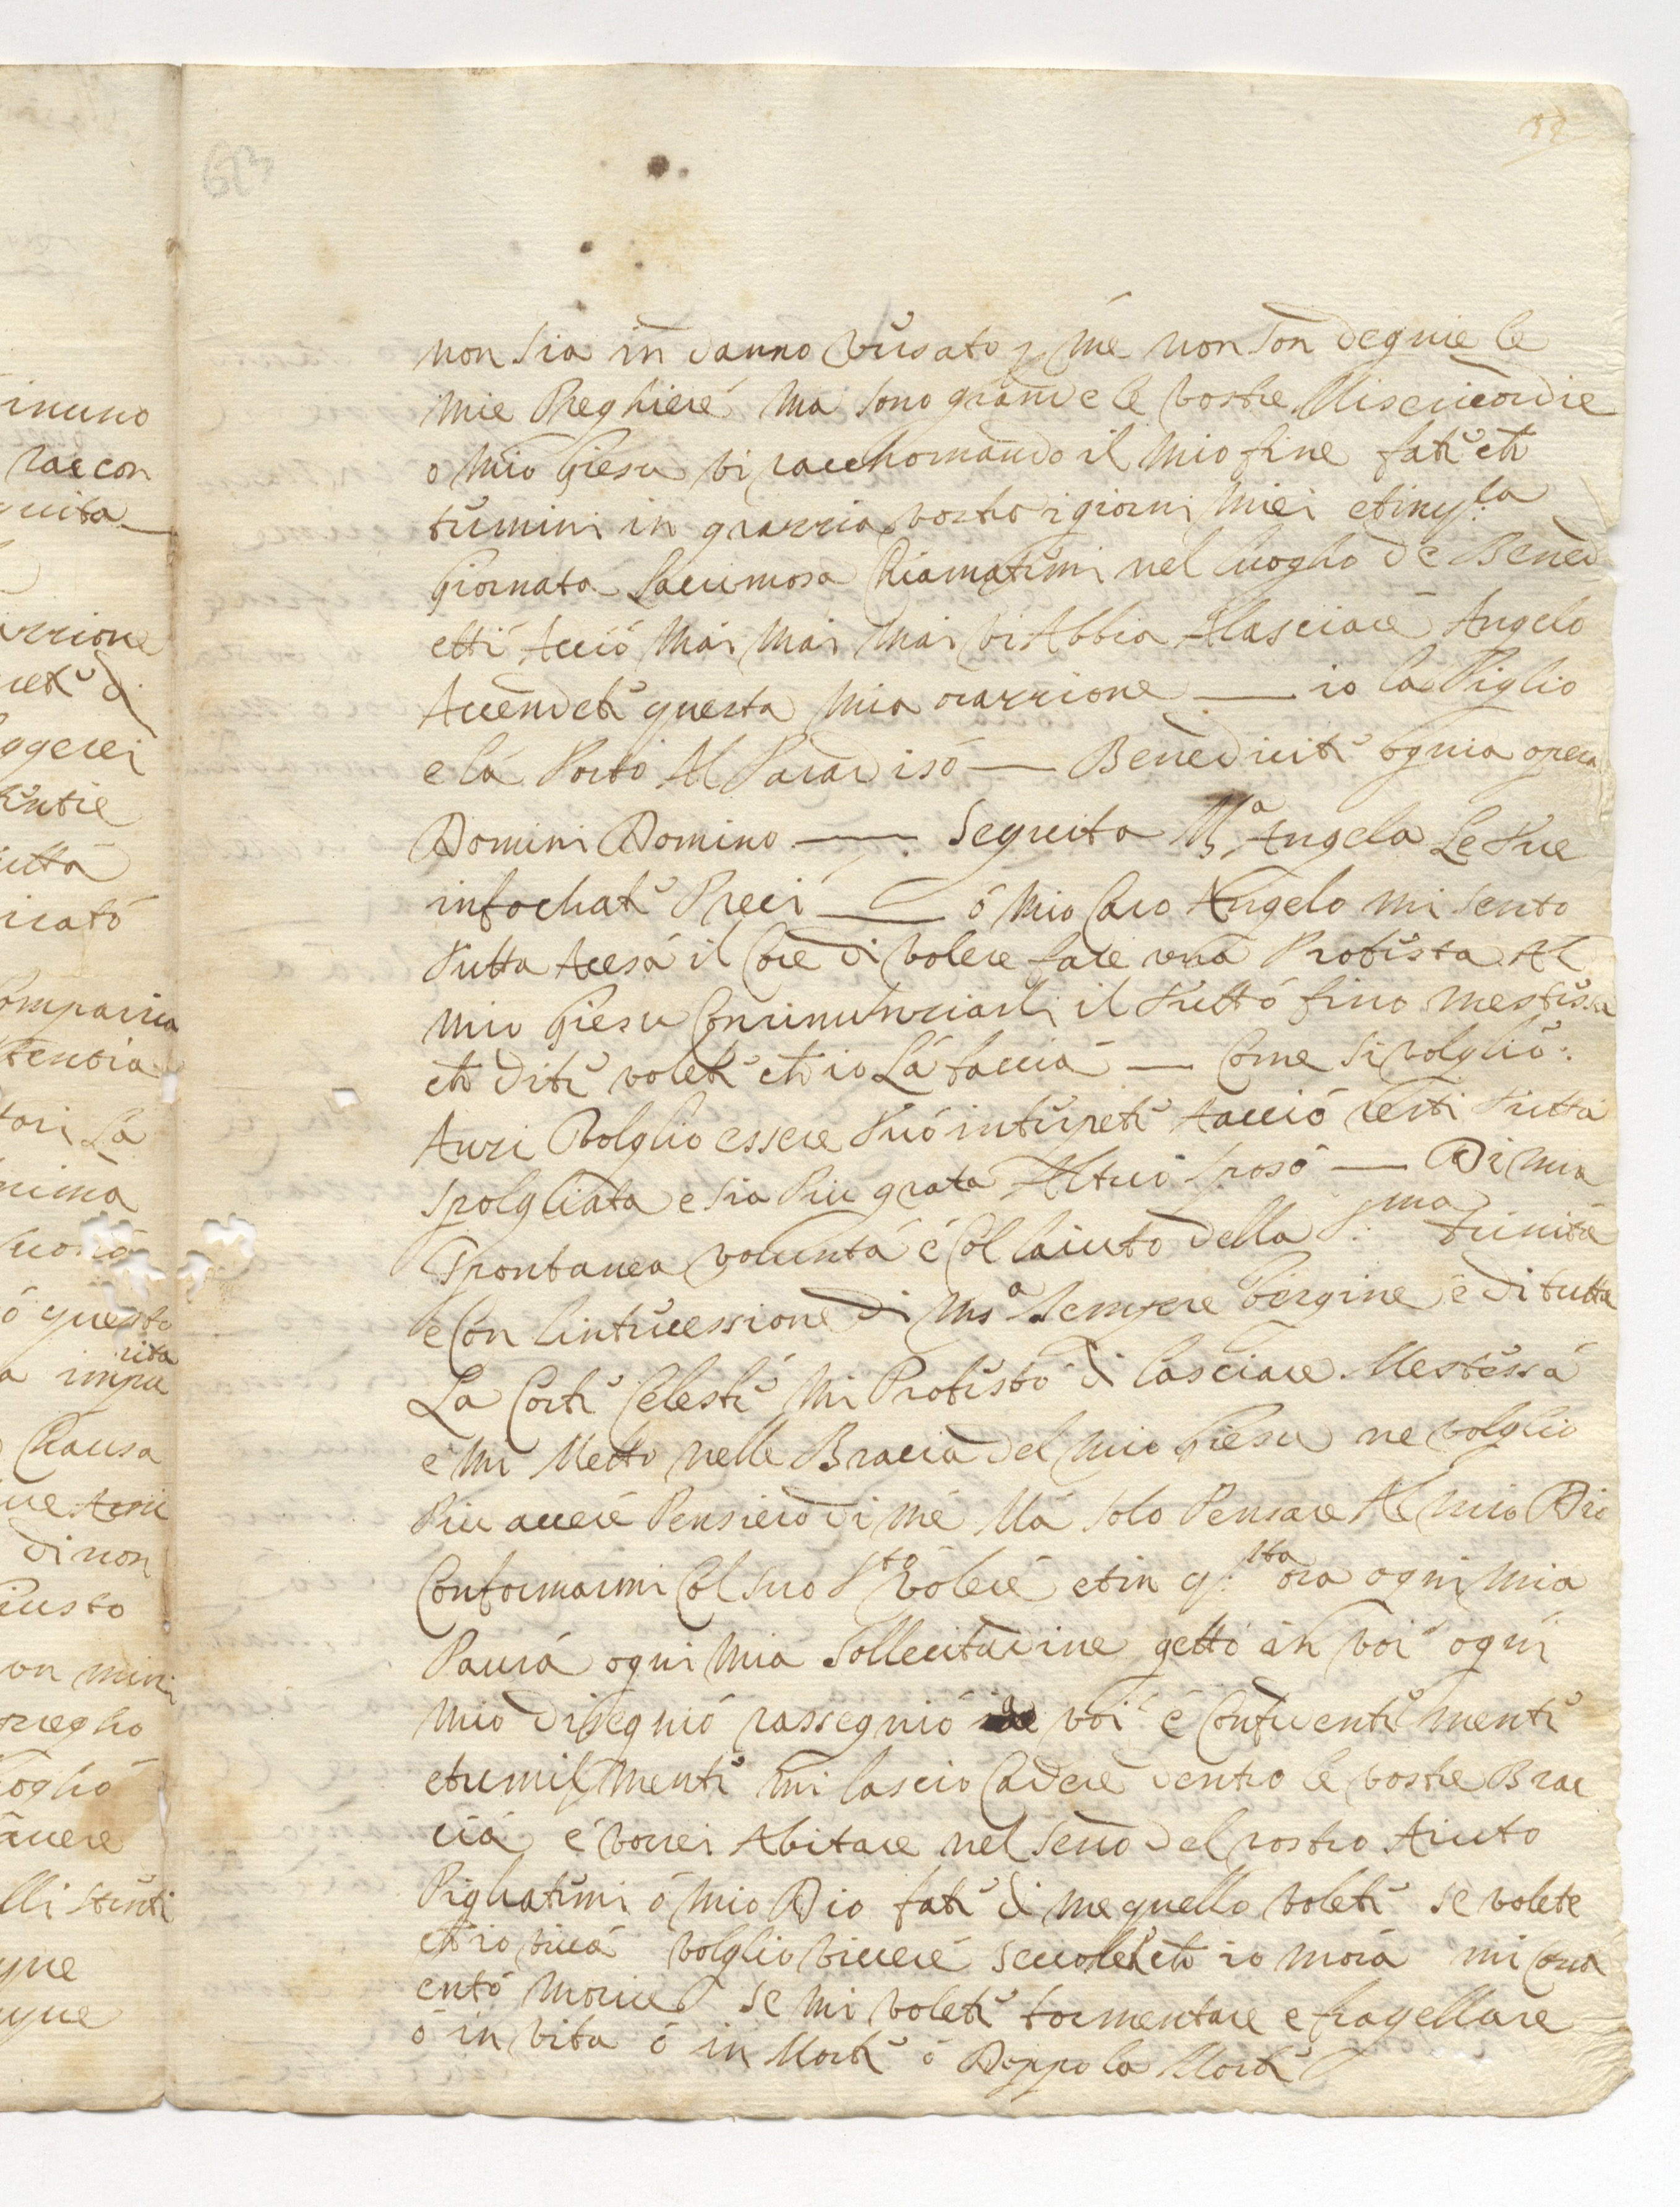 non sia in danno vusato p me non son degnie le
mie Preghiere ma sono grande le vostre Misericordie
o mio Giesu vi racchomando il mio fine fate che
tumini in grazzia vostra i giorni miei et in q.sta
Giornata Lacrimosa Chiamatemi nel luogho de Bened
etti Acciò mai mai mai vi Abbia A lasciare Angelo
Accendete questa mia orazzione — io la Piglio
e la Porto Al Paradiso — Benedicite ognia opera
Domini Domino — Seguita M.a Angela Le Sue
infochate Preci — ó mio Caro Angelo mi sento
tutta Acesa il Core di volere fare una Protesta Al
mio Giesu Con rinunziarli il tutto fino mestessa
che dite volete ch io La faccia — Come si volglio
Anzi Volglio essere tuo interpete Acció resti tutta
spolgliata e sia Piu grata Al tuo sposo — Di mia
Spontanea volunta é Col laiuto della S.ma Trinita
e Con lintercessione di Ma.a Sempre Vergine e di tutta
La Corte Celeste mi Protesto di lasciare Mestessa
e mi Metto nelle Bracia del mio Giesu ne volglio
Piu avere Pensiero di mé Ma solo Pensare Al mio Dio
Conformarmi Col suo S.to Volere et in q.sta ora ogni mia
Paura ogni mia Sollecitudine getto in voi ogni
mio disegnió rassegnió voi é Confidente mente
et umilmente mi lascio Cadere dentro le vostre Brac
cia é vorrei Abitare nel seno del vostro Aiuto
Pigliatemi ó mio Dio fate di me quello volete se volete
ch io viva volglio vivere se volete ch io mora mi Cont
ento morire se mi volete tormentare e fragellare
ó in vita ó in Morte ó Doppo la Morte